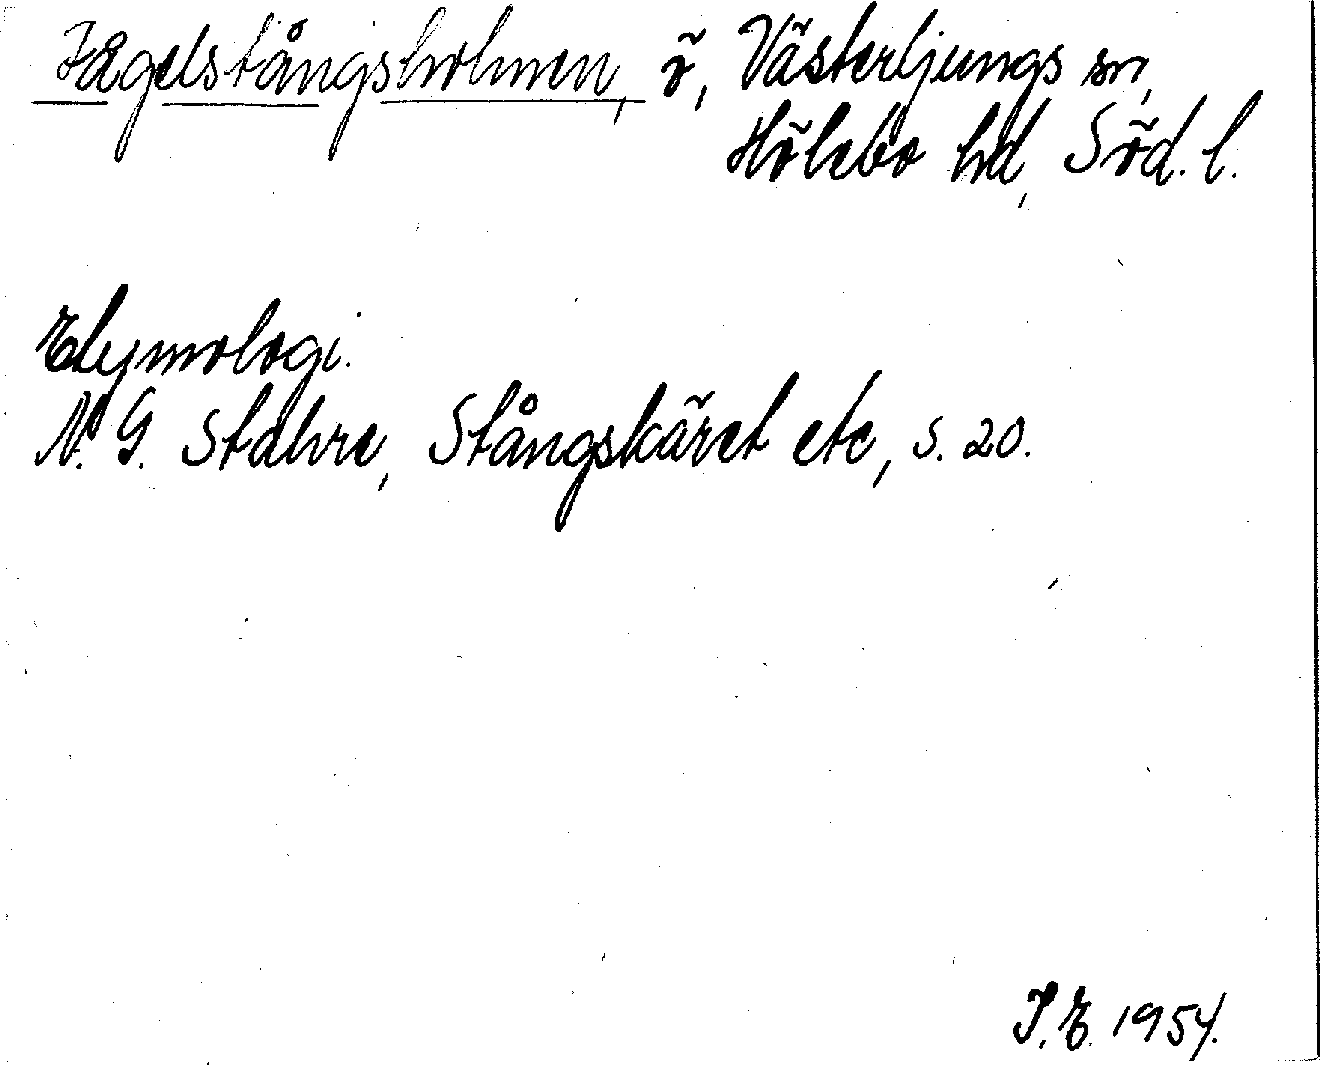 Hägelstångsholmen, ö, Västerljungs sn,
Hölebo hd, Söd. l.
Etymologi.
N. G. Stahre, Stångskäret etc, s. 20.
I. E. 1954.